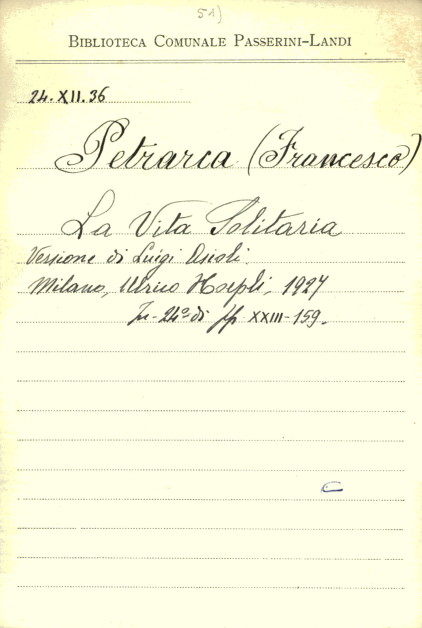 51)
BIBLIOTECA COMUNALE PASSERINI-LANDI
24.XII.36
Petrarca (Francesco)
La Vita Solitaria
Versione di Luigi Asioli.
Milano, Ulrico Hoepli, 1927
In-24º di pp XXIII-159.
C